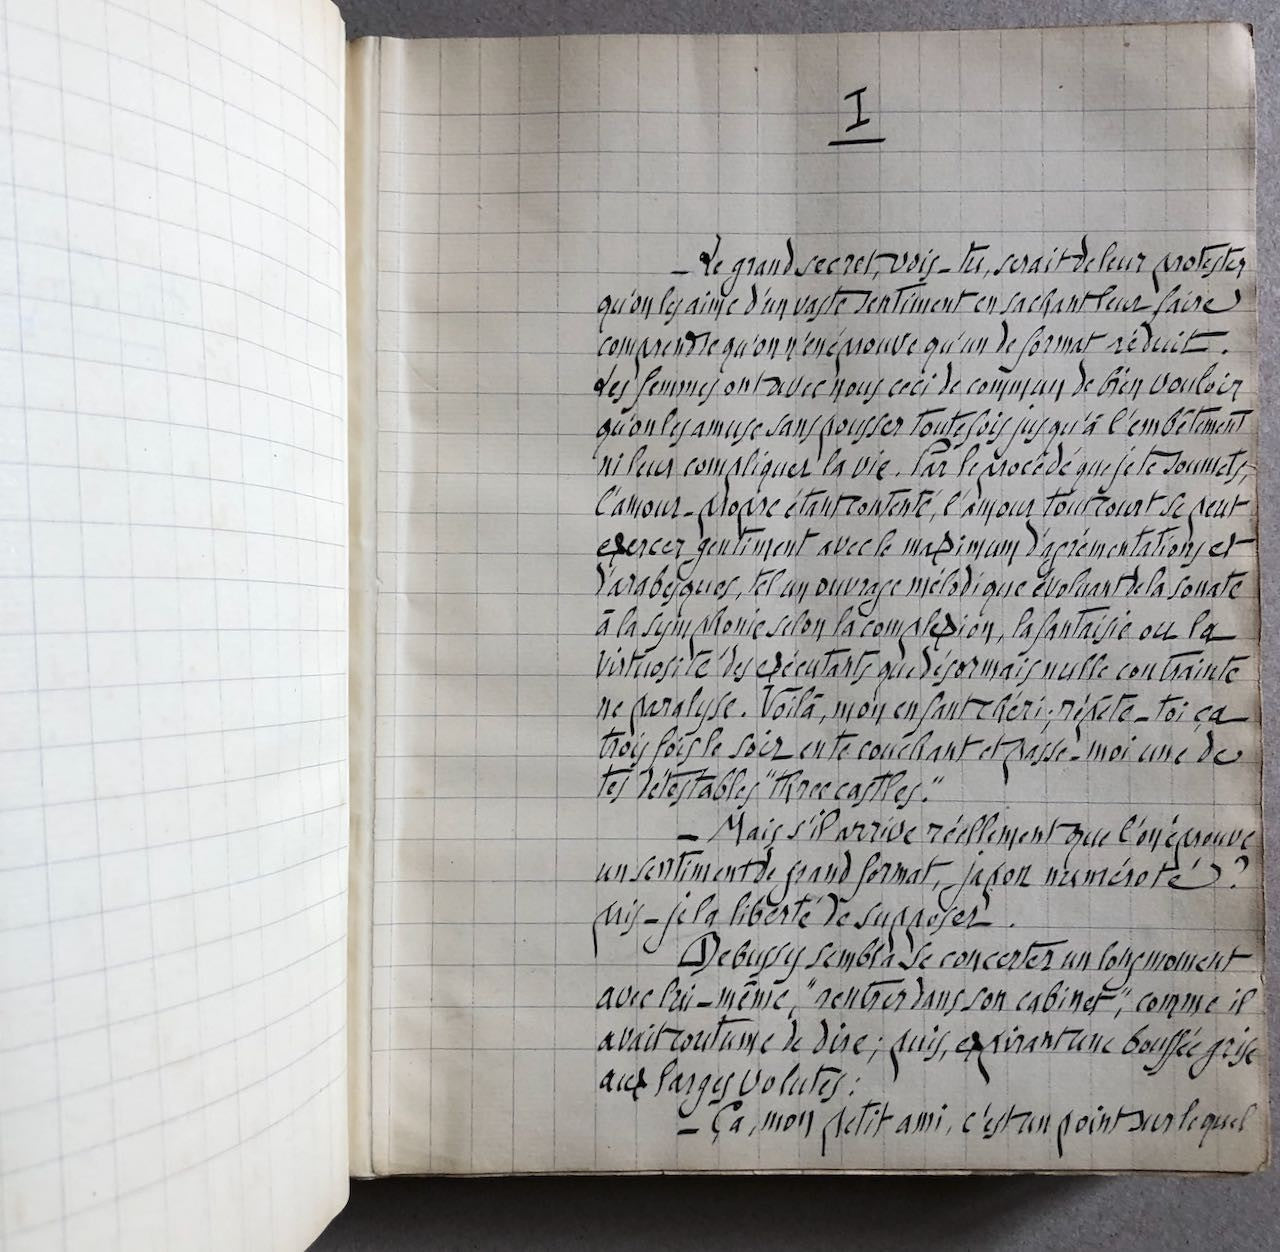 I
— Le grand secret, vois-tu, serait de leur protester
qu'on les aime d'un vaste sentiment en sachant leur faire
comprendre qu'on n'en éprouve qu'un de format réduit.
Les femmes ont avec nous ceci de commun de bien vouloir
qu'on les amuse sans pousser toutefois jusqu'à l'embêtement
ni leur compliquer la vie. Par le procédé que je te soumets,
l'amour-propre étant contenté, l'amour tout court se peut
exercer gentiment avec le maximum d'agrémentations et
d'arabesques, tel un ouvrage mélodique évoluant de la sonate
à la symphonie selon la complexion, la fantaisie ou la
virtuosité des exécutants que désormais nulle contrainte
ne paralyse. Voilà, mon enfant chéri; répète-toi ça
trois fois le soir en te couchant et passe-moi une de
tes détestables "three castles."
— Mais s'il arrive réellement que l'on éprouve
un sentiment de grand format, japon numéroté ?
pris-je la liberté de supposer.
Debussy sembla se concerter un long moment
avec lui-même, "rentrer dans son cabinet", comme il
avait coutume de dire; puis, expirant une bouffée grise
aux larges volutes :
— Ça, mon petit ami, c'est un point sur lequel